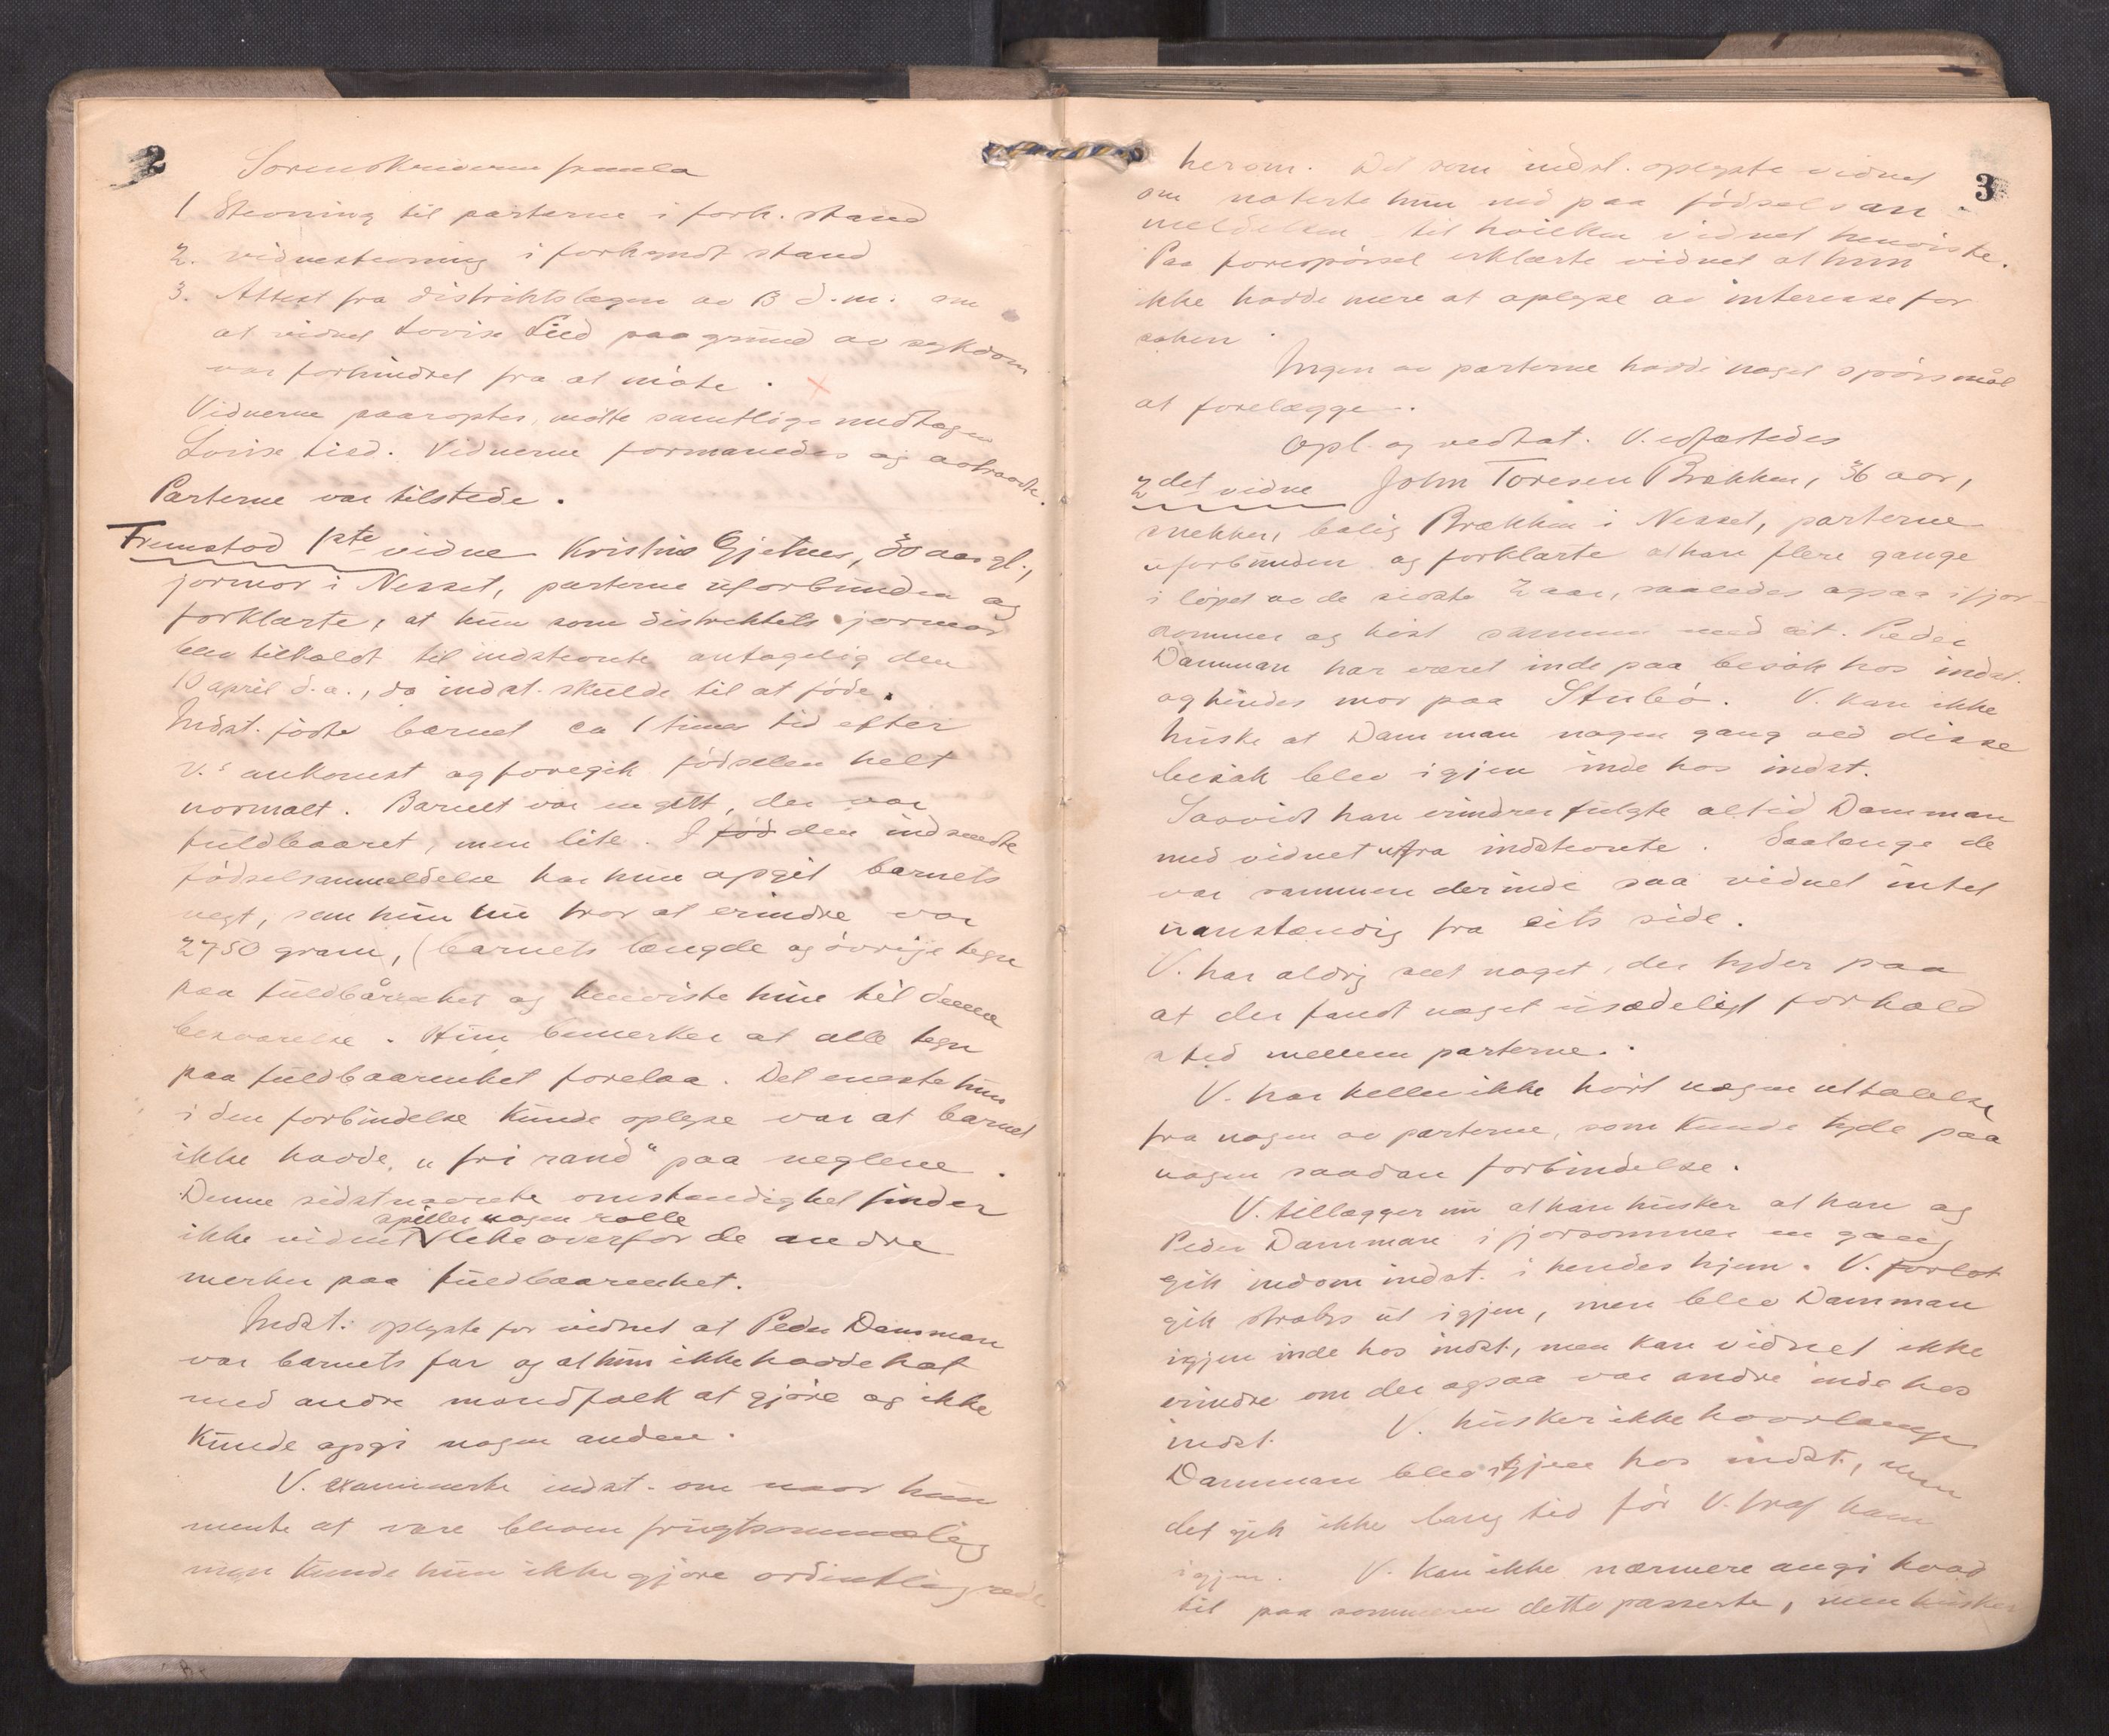 2
Sorenskriveren framla
1 Stevning til parterne i fork. stand
2. vidnestevning i forkyndt stand
3. Attest fra distriktslægen av 13 d.m. om
at vidnet Lovise Lied paa grund av sykdom
var forhindret fra at møte.
Vidnerne paaroptes, møtte samtlige undtagen
Lovise Lied. Vidnerne formanedes og avtraadte.
Parterne var tilstede.
Fremstod 1ste vidne Kristine Gjelnes, 30 aar gl.,
jormor i Nesset, parterne uforbunden og
forklarte, at hun som distriktets jormor
blev tilkaldt til indstevnte antagelig den
10 april d.a., da indst. skulde til at føde.
Indst. fødte barnet ca 1 times tid efter
V.s ankomst og foregik fødselen helt
normalt. Barnet var en gut, der var
fuldbaaret, men lite. I fød den indsendte
fødselsanmeldelse har hun opgit barnets
vegt, som hun nu tror at erindre var
2750 gram, (barnets længde og øvrige tegn
paa fuldbårenhet og henviste hun til denne
besvarelse. Hun bemerker at alle tegn
paa fuldbaarenhet forelaa. Det eneste hun
i den forbindelse kunde oplyse var at barnet
ikke havde "fri rand" paa neglene.
Denne sidstnævnte omstændighet finder
spiller nogen rolle
ikke vidnet like overfor de andre
merker paa fuldbaarenhet.
Indst. oplyste for vidnet at Peder Damman
var barnets far og at hun ikke hadde hat
med andre mandfolk at gjøre og ikke
kunde opgi nogen anden.
V. examinerte indst. om naar hun
mente at være bleven frugtsommelig
men kunde hun ikke gjøre ordentlig rede
3
herom. Det som indst. oplyste vidnet
om noterte hun ned paa fødselsan-
meldelsen til hvilken vidnet henviste.
Paa forespørsel erklærte vidnet at hun
ikke hadde mere at oplyse av interesse for
saken.
Ingen av parterne hadde noget spørsmål
at forelægge.
Opl. og vedtat. V. edfæstedes
2det vidne John Toresen Brækken, 36 aar,
snekker, bolig Brækken i Nesset, parterne
uforbunden og forklarte at han flere gange
i løpet av de sidste 2 aar, saaledes ogsaa ifjor
sommer og høst sammen med cit. Peder
Damman har været inde paa besøk hos indst.
og hendes mor paa Stubø. V. kan ikke
huske at Damman nogen gang ved disse
besøk blev igjen inde hos indst.
Saavidt han erindrer fulgte altid Damman
med vidnet ut fra indstevnte. Saalænge de
var sammen der inde saa vidnet intet
uanstændig fra cits side.
V. har aldrig set noget, der tyder paa
at der fandt noget usædeligt forhold
sted mellem parterne.
V. har heller ikke hørt nogen uttalelse
fra nogen av parterne, som kunde tyde paa
nogen saadan forbindelse.
V. tillægger nu at han husker at han og
Peder Damman i fjorsommer en gang
gik indom indst. i hendes hjem. V. forlot
gik straks ut igjen, men blev Damman
igjen inde hos indst., men kan vidnet ikke
erindre om der ogsaa var andre inde hos
indst. V. husker ikke hvorlænge
Damman blev igjen hos indst., men
det gik ikke lang tid før V. traf ham
igjen. V. kan ikke nærmere angi hvad
tid paa sommeren dette passerte, men husker